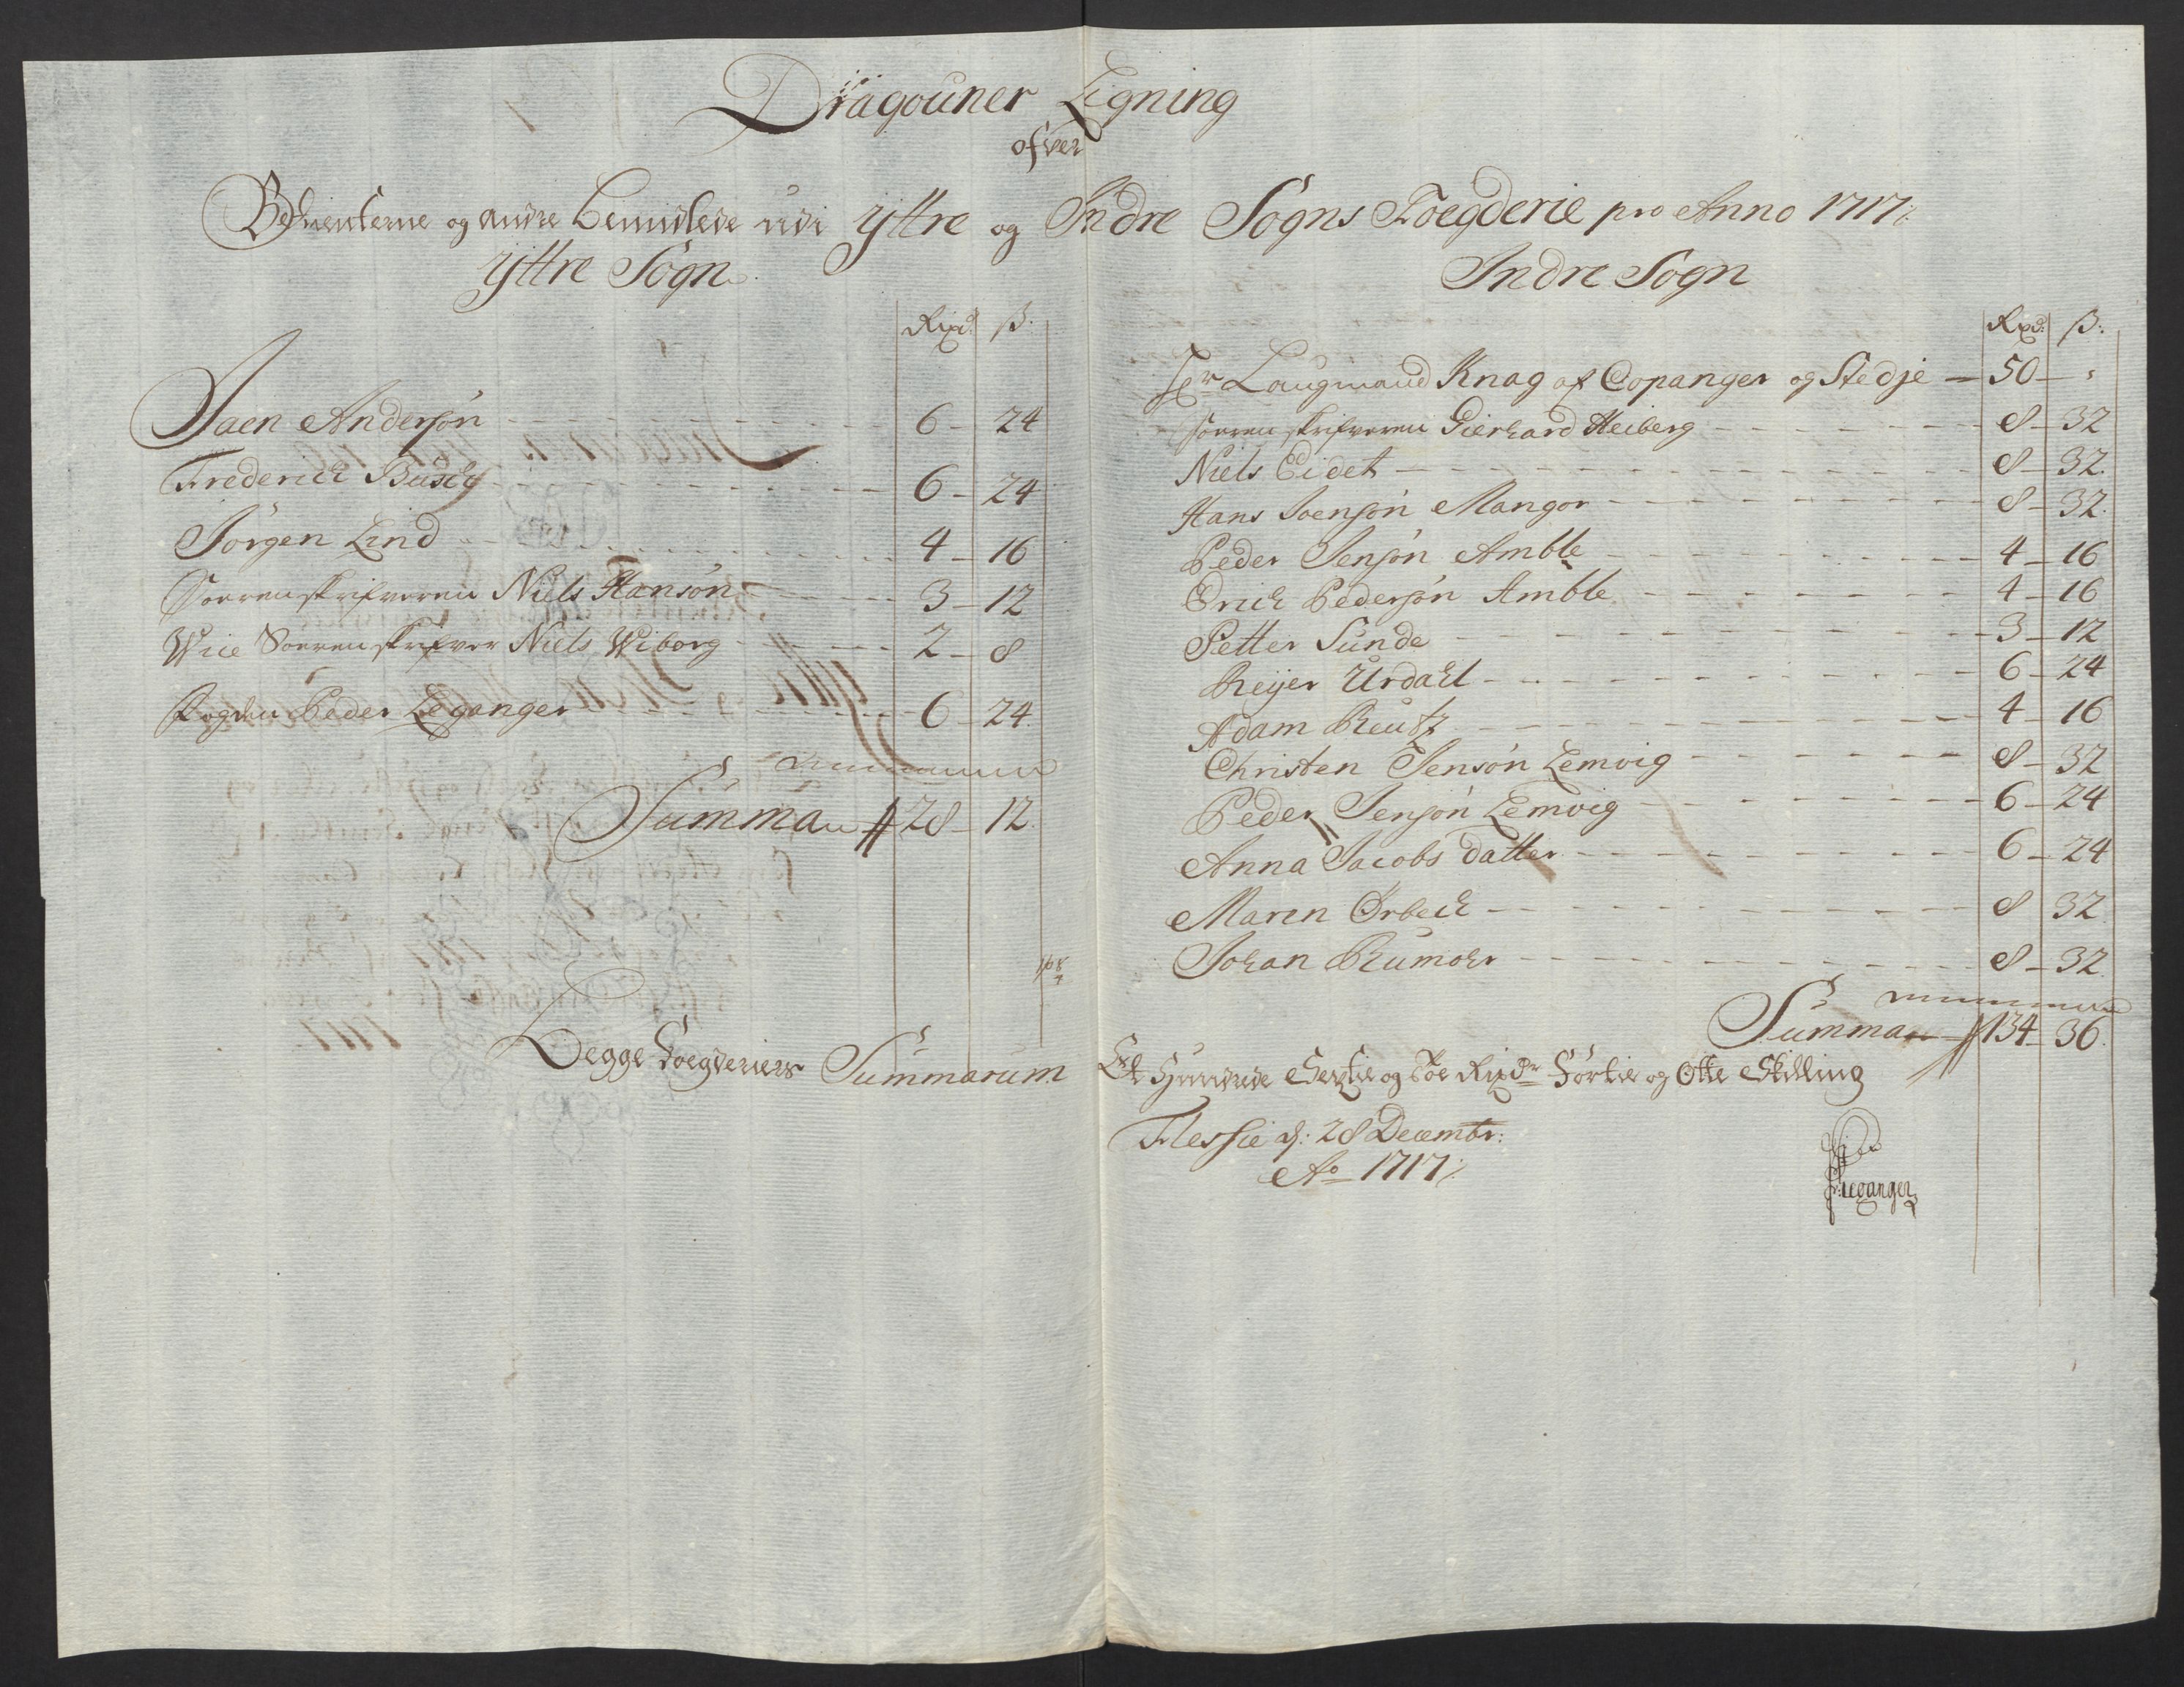 Dragouner Ligning
ofver
Betienterne og andre bemidlede udi Yttre og Indre Sogns Foegderie pro Anno 1717
Yttre Sogn
Rixd ß.
Iaen Andersøn 6 24
Frederich Busch 6 24
Jørgen Lind 4 16
Soerenskrifveren Niels Hansøn 3 12
Wice Soerenskrifver Niels Wiborg 2 8
Fogden Peder Leganger 6 24
Summa 28 12
168
4
Begge Foegderiers Summarum
Indre Sogn
Rixd: ß:
Hr Laugmand Knag af Copanger og Stedje 50 -
Soerenskrifveren Gierhard Heiberg 8 32
Niels Eidet 8 32
Hans Joensøn Mangor 8 32
Peder Jensøn Amble 4 16
Erich Pedersøn Amble 4 16
Petter Sunde 3 12
Reyer Urdahl 6 24
Adam Reutz 4 16
Christen Jensøn Lemvig 8 32
Peder Jensøn Lemvig 6 24
Anna Jacobs datter 6 24
Maren Ørbech 8 32
Johan Rumohr 8 32
Summa 134 36
Et Hundrede Sextie og Toe Rixdr Førtie og Otte Skilling
Flessie d: 28 Decembr:
Ao 1717
Leganger